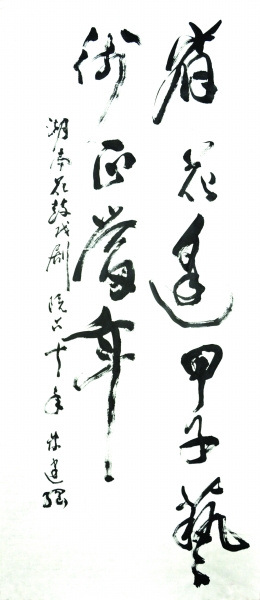 省花逢甲子藝
術正當年
湖南花鼓戏剧院六十年 朱建纲